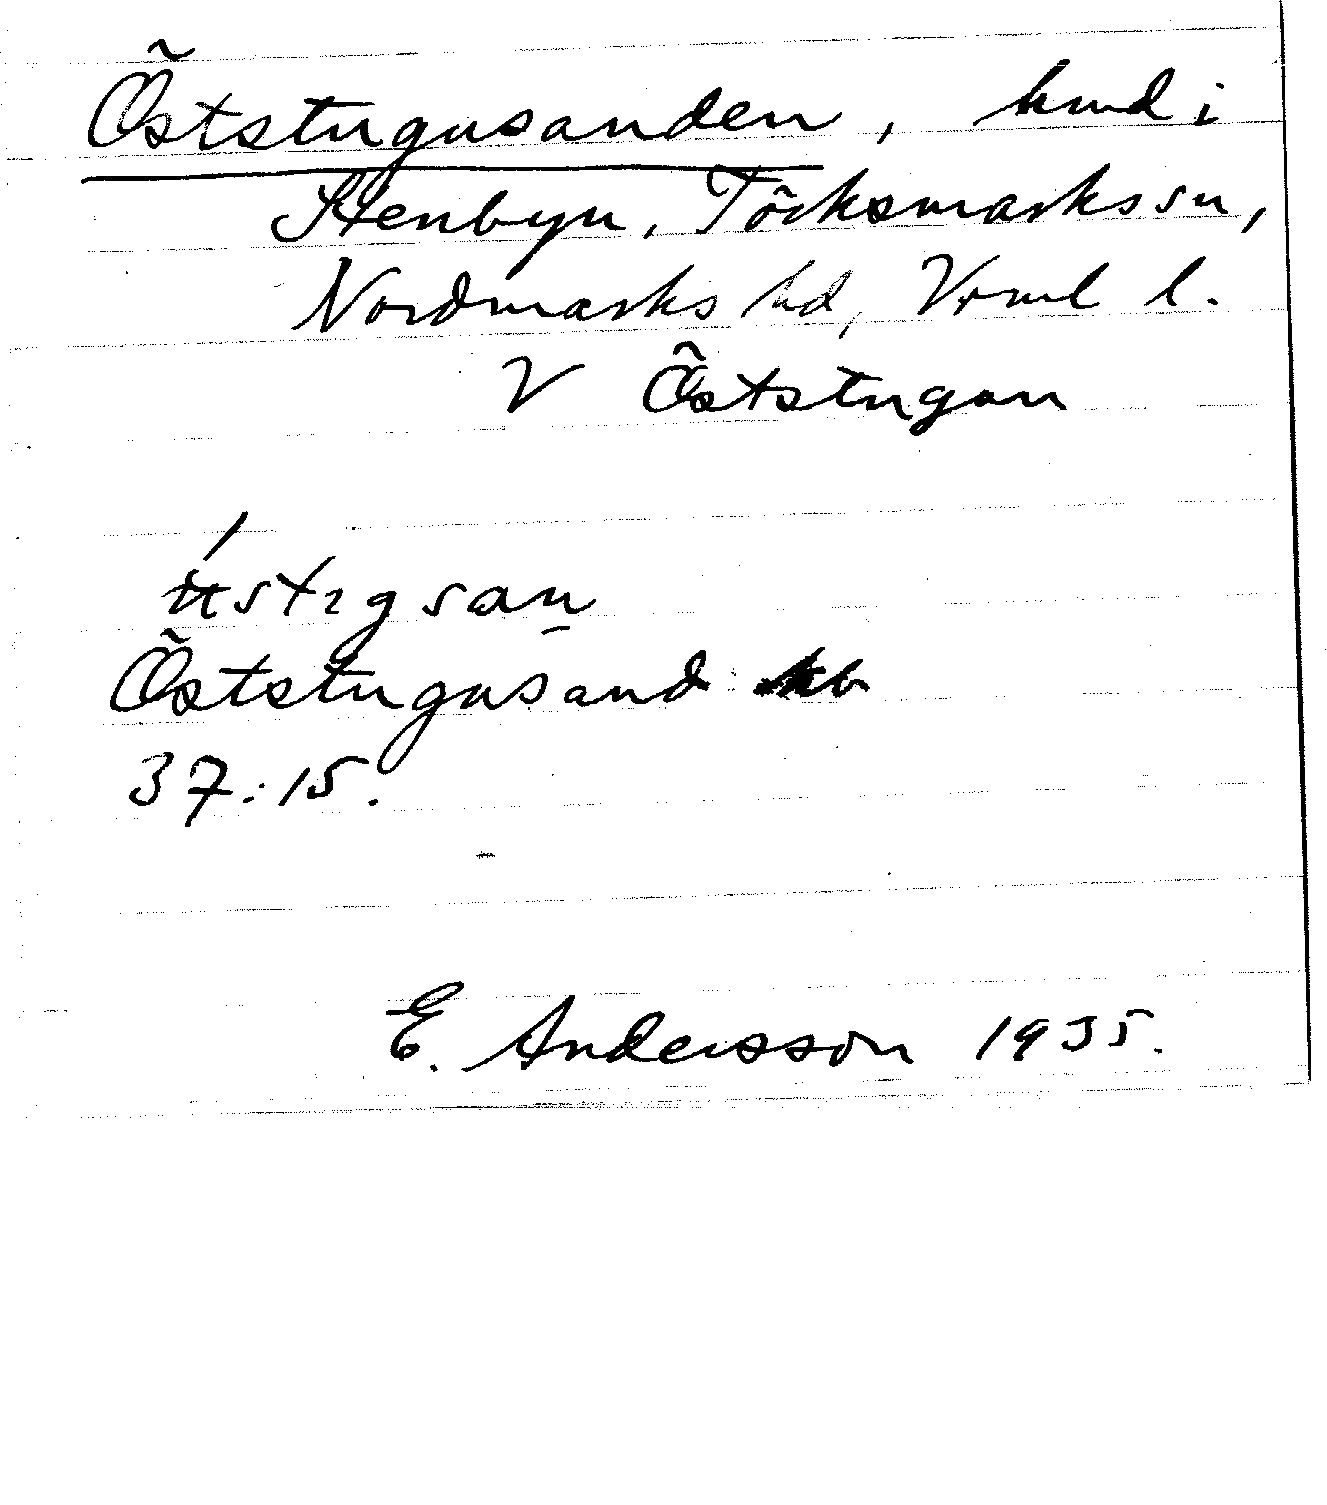 Öststugusanden, hmd i
Stenbyn, Töcksmarks sn,
Nordmarks hd, Vrml l.
V Öststugan
Öststugusand
37:15.
E. Andersson 1935.